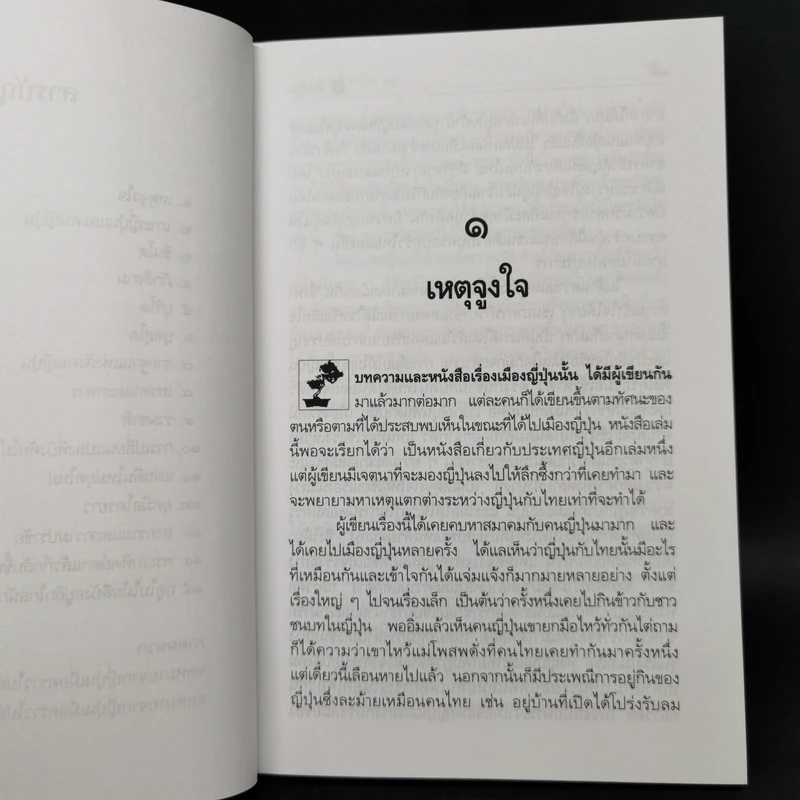 ๑
เหตุจูงใจ
บทความและหนังสือเรื่องเมืองญี่ปุ่นนั้น ได้มีผู้เขียนกัน
มาแล้วมากต่อมาก แต่ละคนก็ได้เขียนขึ้นตามทัศนะของ
ตนหรือตามที่ได้ประสบพบเห็นในขณะที่ได้ไปเมืองญี่ปุ่น หนังสือเล่ม
นี้พอจะเรียกได้ว่า เป็นหนังสือเกี่ยวกับประเทศญี่ปุ่นอีกเล่มหนึ่ง
แต่ผู้เขียนมีเจตนาที่จะมองญี่ปุ่นลงไปให้ลึกซึ้งกว่าที่เคยทำมา และ
จะพยายามหาเหตุแตกต่างระหว่างญี่ปุ่นกับไทยเท่าที่จะทำได้
ผู้เขียนเรื่องนี้ได้เคยคบหาสมาคมกับคนญี่ปุ่นมามาก และ
ได้เคยไปเมืองญี่ปุ่นหลายครั้ง ได้แลเห็นว่าญี่ปุ่นกับไทยนั้นมีอะไร
ที่เหมือนกันและเข้าใจกันได้แจ่มแจ้งก็มากมายหลายอย่าง ตั้งแต่
เรื่องใหญ่ ๆ ไปจนเรื่องเล็ก เป็นต้นว่าครั้งหนึ่งเคยไปกินข้าวกับชาว
ชนบทในญี่ปุ่น พออิ่มแล้วเห็นคนญี่ปุ่นเขายกมือไหว้ทั่วกันไต่ถาม
ก็ได้ความว่าเขาไหว้แม่โพสพดั่งที่คนไทยเคยทำกันมาครั้งหนึ่ง
แต่เดี๋ยวนี้เลือนหายไปแล้ว นอกจากนั้นก็มีประเพณีการอยู่กินของ
ญี่ปุ่นซึ่งละม้ายเหมือนคนไทย เช่น อยู่บ้านที่เปิดได้โปร่งรับลม